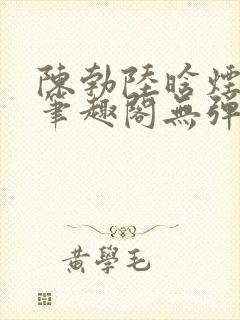 陳勃陸晗煙
筆趣閣無彈
黃學毛